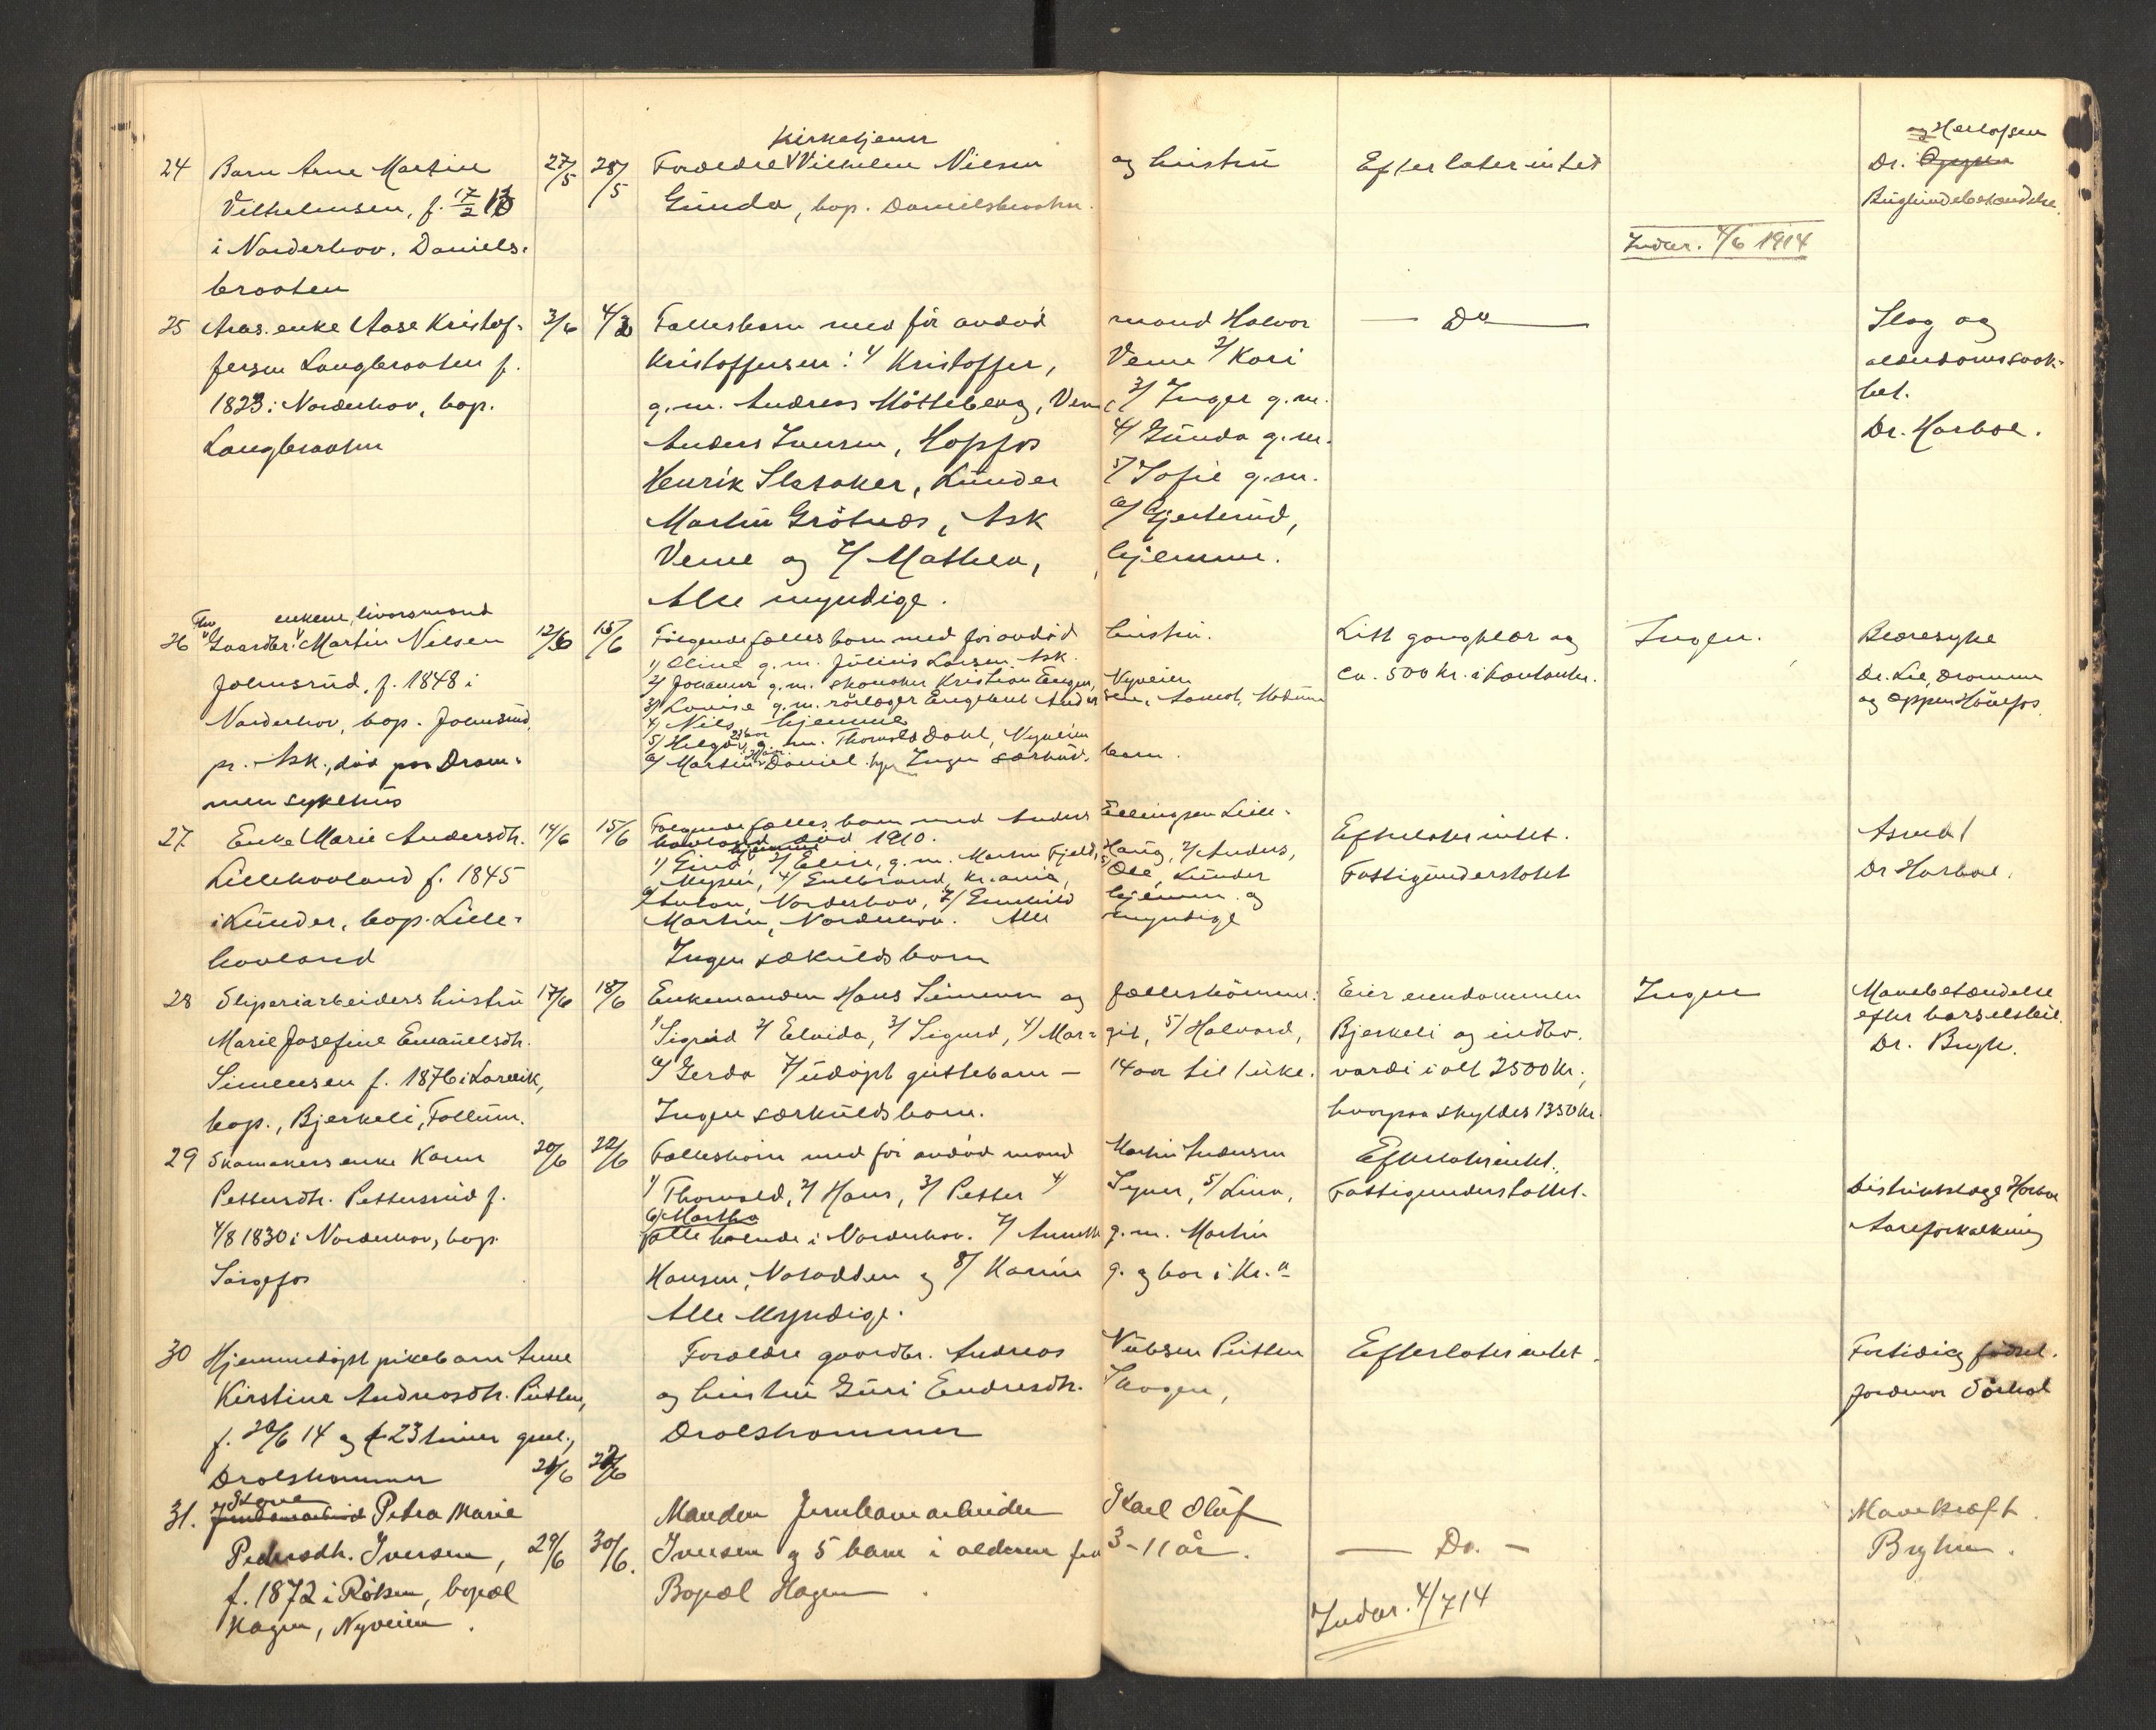 24 Barn Arne Martin 27/5 28/5 Forældre kirketjener Vilhelm Nilsen og hustru Efterlater intet Dr.
Vilhelmsen, f. 17/2 13 Gunda, bop. Danielsbraaten. Bughindebetændelse.
i Norderhov. Daniels-
braaten
Indber. 4/6 1914
25 Arb. enke Aase Kristof- 3/6 4/6 Fællesbarn med før avdød mand Halvor — Do — Slag og
fersen Langbraaten f. Kristoffersen: 1/ Kristoffer, Veme 2/ Kari alderdomssvak-
1823 i Norderhov, bop. g.m. Andreas Mötteberg, Veme 3/ Inger g.m. het.
Langbraaten Anders Iversen, Hopfos 4/ Gunda g.m. Dr. Harboe.
Henrik Slesaker, Lunder 5/ Sofie g.m.
Martin Grötnes, Ask 6/ Gjertrud,
Veme og 7/ Mathea, hjemme.
Alle myndige.
enkem., livørsmand
26 Gaardbr. Martin Nilsen 12/6 15/6 Følgende fællesbarn med før avdöd hustru. Litt gangklær og Ingen. Blæresyke
1) Oline g.m. Julius Larsen Ask.
Johnsrud, f. 1848 i 2/ Johanne g.m. skomaker Kristian Nyveien ca. 500 kr. i kontanter. Dr. Lie, Drammen
3/ Louise g.m. rörlægger Engebret Andersen, Aamot, Modum og Oppen Hönefos.
Norderhov, bop. Johnsrud 4/ Nils, hjemme
5/ Helga g.m. Thorvald Dahl, Nyveien
pr. Ask, død paa Dram- 6/ Martin Daniel hjem Ingen særkuldsbarn.
men sykehus
27 Enke Marie Andersdtr. 14/6 15/6 Følgende fælles barn med Anders Ellingsen Lille- Efterlater intet. Asmal
hovland død 1910.
1/ Gina hjemme 2/ Elise, g.m. Martin Fjeld, Haug, 3/ Anders,
Lillehovland f. 1845 Mysen, 4/ Gulbrand, Kr.ania, 5/ Ole, Lunder Fattigunderstøttet Dr Harboe.
6/ Anton, Norderhov, 7/ Gunhild hjemme og
i Lunder, bop. Lille- Martin, Norderhov. Alle myndige
hovland Ingen særkuldsbarn
28 Sliperiarbeiders hustru 17/6 18/6 Enkemanden Hans Simensen og fælleskommer: Eier eiendommen Ingen Mavebetændelse
efter barselsteil.
Marie Josefine Emanuelsdtr. 1/ Sigrid 2/ Elvida, 3/ Sigurd, 4/ Mar- git, 5/ Halvard, Bjerkeli og indbo. Dr. Bryhn.
Simensen f. 1876 i Larvik, 6/ Gerda 7/ udöpt guttebarn — 14 aar til 1 uke. værdi i alt 2500 kr.,
bop., Bjerkeli, Follum. Ingen særkuldsbarn. hvorpaa skyldes 1350 kr.
29 Skomakers enke Karen 20/6 22/6 Fællesbarn med før avdød mand Martin Andersen Efterlater intet.
Pettersdtr. Pettersrud f. 1/ Thorvald, 2/ Hans, 3/ Petter 4/ Syver, 5/ Lina, Fattigunderstøttet. Distriktslæge Harboe
6) Martha
4/8 1830 i Norderhov, bop. alle boende i Norderhov. 7/ Annette g.m. Martin Aareforkalkning
Sörgefos Hansen, Notodden og 8/ Karine g. og bor i Kr.a
Alle Myndige.
30 Hjemmedöpt pikebarn Anne Forældre gaardbr. Andreas Nubsen Putten Efterlater intet. Fortidlig födsel.
Kirstine Andreasdtr. Putten, og hustru Guri Endresdtr. Skogen, Jordmor Sörhol
f. 20/6 14 og † 23 timer gml., Drolshammer
Drolshammer 21/6 22/6
31. Petra Marie Manden Jernbanearbeider Karl Olaf Mavekræft.
Pedersdh. Iversen, 29/6 30/6. Iversen og 5 barn i alderen fra 3-11 år. — Do. — Bryhn.
f. 1872 i Röken, bopæl Bopæl Hagen.
Hagen, Nyveien.
Indber. 4/7 14